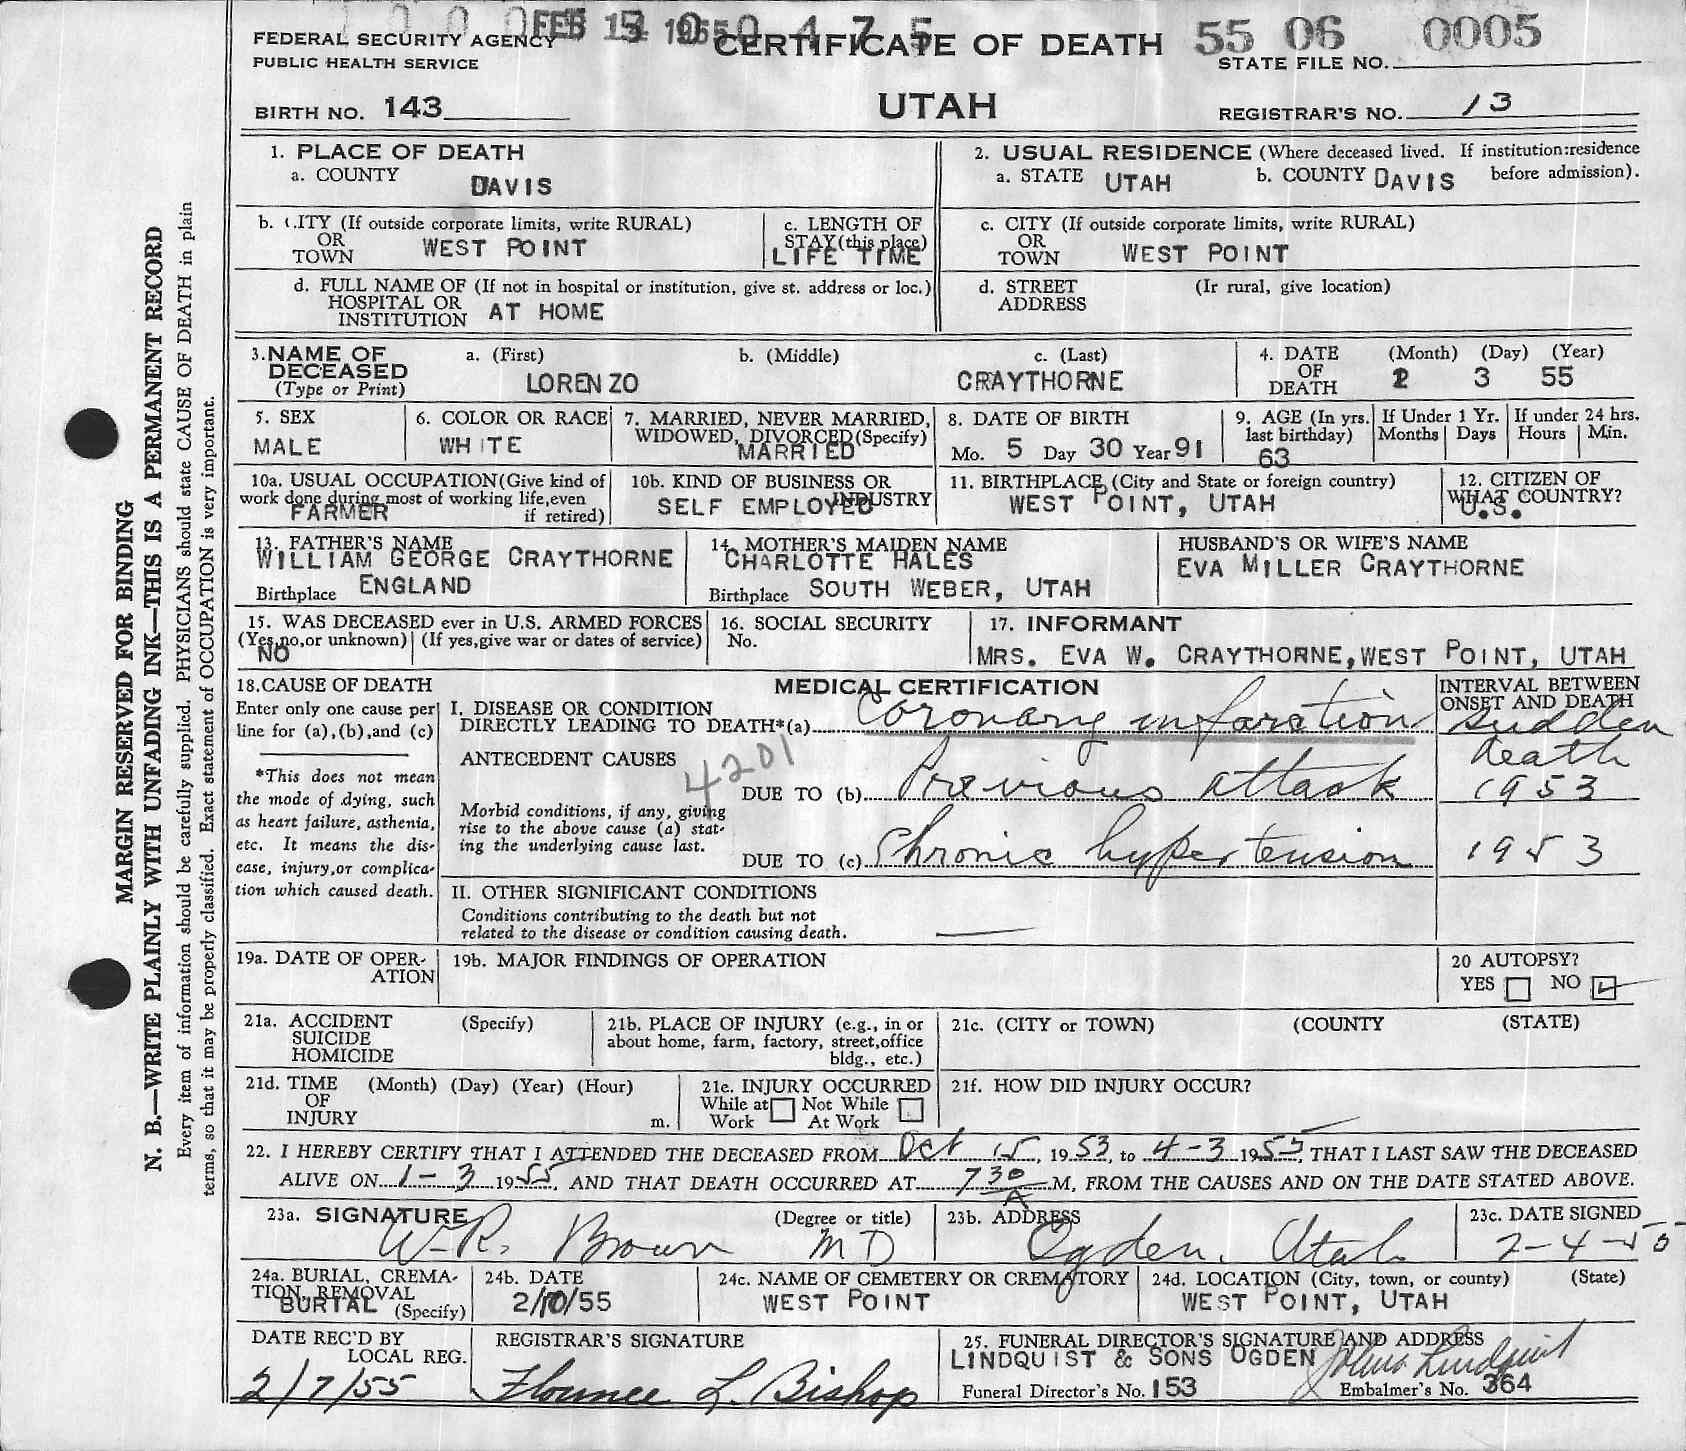 FEDERAL SECURITY AGENCY
PUBLIC HEALTH SERVICE
CERTIFICATE OF DEATH
55 06 0005
STATE FILE NO.
BIRTH NO. 143
UTAH
REGISTRAR'S NO. 13
1. PLACE OF DEATH
a. COUNTY DAVIS
2. USUAL RESIDENCE (Where deceased lived. If institution:residence before admission).
a. STATE UTAH b. COUNTY DAVIS
b. CITY (If outside corporate limits, write RURAL)
OR
TOWN WEST POINT
c. LENGTH OF
STAY (this place)
LIFE TIME
c. CITY (If outside corporate limits, write RURAL)
OR
TOWN WEST POINT
d. FULL NAME OF (If not in hospital or institution, give st. address or loc.)
HOSPITAL OR
INSTITUTION AT HOME
d. STREET (Ir rural, give location)
ADDRESS
3. NAME OF
DECEASED
(Type or Print)
a. (First) b. (Middle) c. (Last)
LORENZO CRAYTHORNE
4. DATE
OF
DEATH
(Month) (Day) (Year)
2 3 55
5. SEX
MALE
6. COLOR OR RACE
WHITE
7. MARRIED, NEVER MARRIED,
WIDOWED, DIVORCED (Specify)
MARRIED
8. DATE OF BIRTH
Mo. 5 Day 30 Year 91
9. AGE (In yrs.
last birthday)
63
If Under 1 Yr.
Months Days
If under 24 hrs.
Hours Min.
10a. USUAL OCCUPATION (Give kind of
work done during most of working life, even
if retired)
FARMER
10b. KIND OF BUSINESS OR
INDUSTRY
SELF EMPLOYED
11. BIRTHPLACE (City and State or foreign country)
WEST POINT, UTAH
12. CITIZEN OF
WHAT COUNTRY?
U.S.
13. FATHER'S NAME
WILLIAM GEORGE CRAYTHORNE
Birthplace ENGLAND
14. MOTHER'S MAIDEN NAME
CHARLOTTE HALES
Birthplace SOUTH WEBER, UTAH
HUSBAND'S OR WIFE'S NAME
EVA MILLER CRAYTHORNE
15. WAS DECEASED ever in U.S. ARMED FORCES
(Yes,no,or unknown) (If yes,give war or dates of service)
NO
16. SOCIAL SECURITY
No.
17. INFORMANT
MRS. EVA W. CRAYTHORNE, WEST POINT, UTAH
18. CAUSE OF DEATH
Enter only one cause per
line for (a),(b),and (c)
*This does not mean
the mode of dying, such
as heart failure, asthenia,
etc. It means the dis-
ease, injury,or complica-
tion which caused death.
MEDICAL CERTIFICATION
I. DISEASE OR CONDITION
DIRECTLY LEADING TO DEATH*(a) Coronary infarction
ANTECEDENT CAUSES
4201
DUE TO (b) Previous attack
Morbid conditions, if any, giving
rise to the above cause (a) stat-
ing the underlying cause last.
DUE TO (c) Chronic hypertension
INTERVAL BETWEEN
ONSET AND DEATH
sudden
death
1953
1953
II. OTHER SIGNIFICANT CONDITIONS
Conditions contributing to the death but not
related to the disease or condition causing death.
19a. DATE OF OPER-
ATION
19b. MAJOR FINDINGS OF OPERATION
20 AUTOPSY?
YES NO
21a. ACCIDENT (Specify)
SUICIDE
HOMICIDE
21b. PLACE OF INJURY (e.g., in or
about home, farm, factory, street,office
bldg., etc.)
21c. (CITY or TOWN) (COUNTY (STATE)
21d. TIME (Month) (Day) (Year) (Hour)
OF
INJURY m.
21e. INJURY OCCURRED
While at Not While
Work At Work
21f. HOW DID INJURY OCCUR?
22. I HEREBY CERTIFY THAT I ATTENDED THE DECEASED FROM Oct 15, 1953, to 4-3 1955, THAT I LAST SAW THE DECEASED
ALIVE ON 1-3 1955, AND THAT DEATH OCCURRED AT 7 30 A M, FROM THE CAUSES AND ON THE DATE STATED ABOVE.
23a. SIGNATURE (Degree or title)
W.R. Brown MD
23b. ADDRESS
Ogden, Utah
23c. DATE SIGNED
2-4-55
24a. BURIAL, CREMA-
TION, REMOVAL
BURIAL (Specify)
24b. DATE
2/10/55
24c. NAME OF CEMETERY OR CREMATORY
WEST POINT
24d. LOCATION (City, town, or county) (State)
WEST POINT, UTAH
DATE REC'D BY
LOCAL REG.
2/7/55
REGISTRAR'S SIGNATURE
Florence L. Bishop
25. FUNERAL DIRECTOR'S SIGNATURE AND ADDRESS
LINDQUIST & SONS OGDEN
Funeral Director's No. 153
Embalmer's No. 364
MARGIN RESERVED FOR BINDING
N. B.—WRITE PLAINLY WITH UNFADING INK—THIS IS A PERMANENT RECORD
Every item of information should be carefully supplied. PHYSICIANS should state CAUSE OF DEATH in plain
terms, so that it may be properly classified. Exact statement of OCCUPATION is very important.